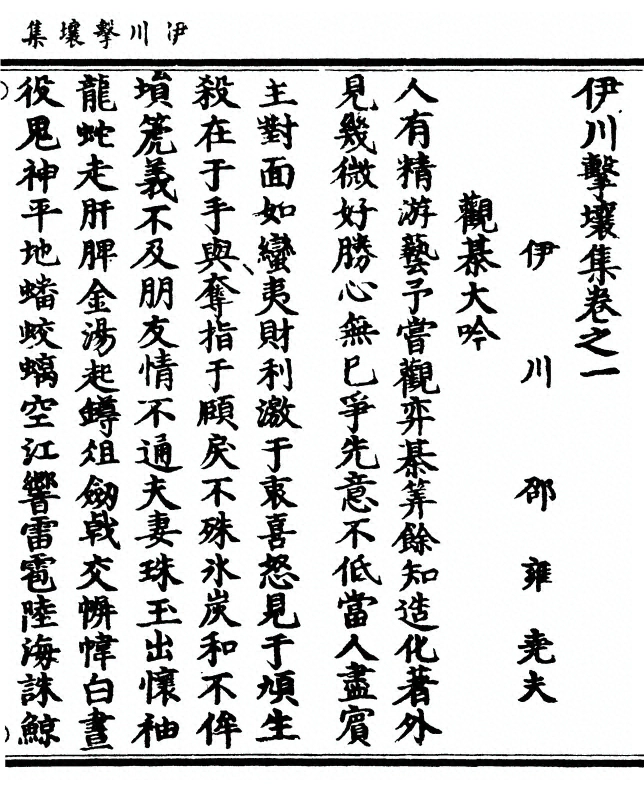 伊川擊壤集
伊川擊壤集卷之一
伊川邵雍堯夫
觀棊大吟
人有精游藝予嘗觀弈棊筭餘知造化著外
見幾微好勝心無已爭先意不低當人盡賓
主對面如蠻夷財利激于衷喜怒見于頄生
殺在于手與奪指于頤戾不殊氷炭和不侔
塤箎義不及朋友情不通夫妻珠玉出懷袖
龍蛇走肝脾金湯起鐏俎劒戟交幈幃白晝
役鬼神平地蟠蛟螭空江響雷雹陸海誅鯨